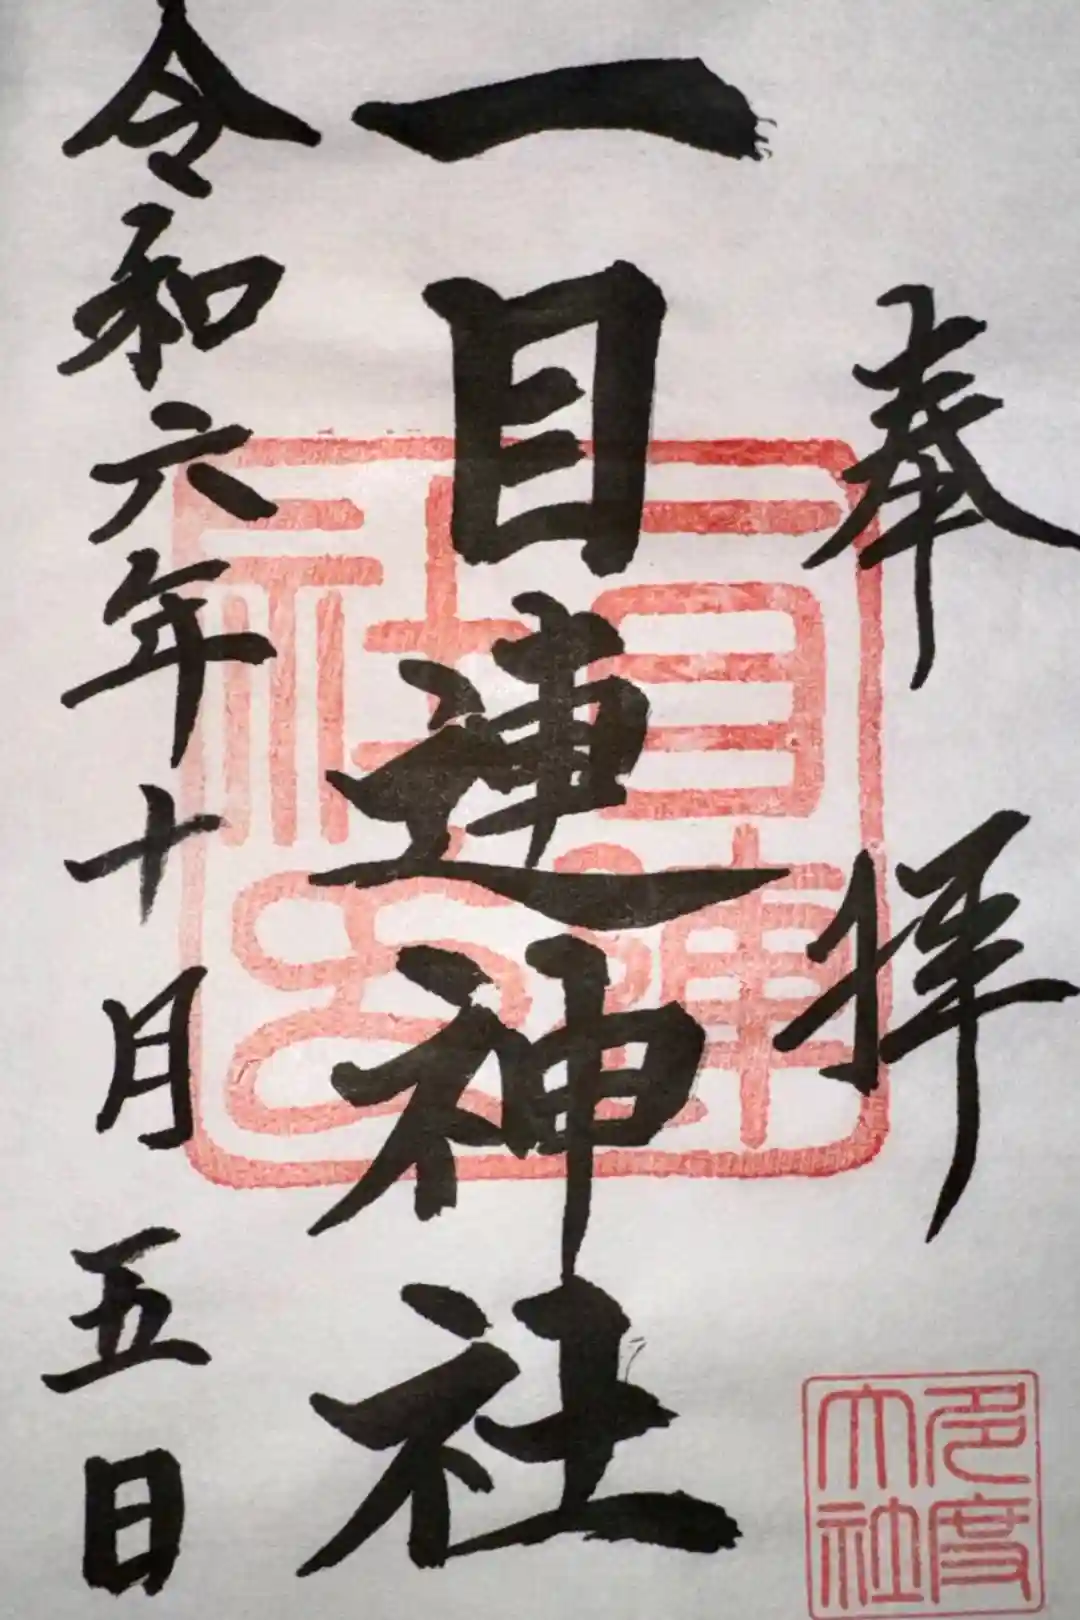 奉拝
一目連神社
令和六年十月五日
一目連社印
多度大社